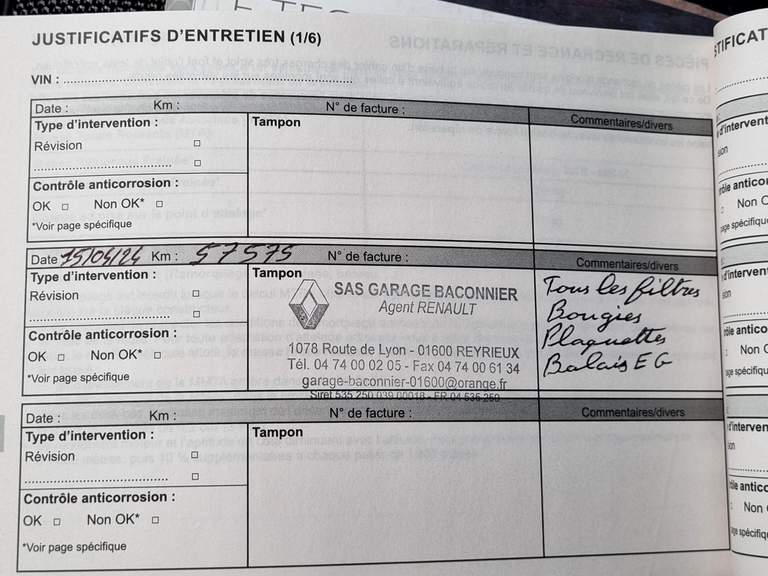 JUSTIFICATIFS D'ENTRETIEN (1/6)
VIN :
Date : Km : N° de facture : Commentaires/divers
Type d'intervention : Tampon
Révision □
□
Contrôle anticorrosion :
OK □ Non OK* □
*Voir page spécifique
Date 15/04/24 Km : 57575 N° de facture : Commentaires/divers
Type d'intervention : Tampon
Révision □
□
Contrôle anticorrosion :
OK □ Non OK* □
*Voir page spécifique
SAS GARAGE BACONNIER
Agent RENAULT
1078 Route de Lyon - 01600 REYRIEUX
Tél. 04 74 00 02 05 - Fax 04 74 00 61 34
garage-baconnier-01600@orange.fr
Siret 535 250 039 00018 - FR 04 535 250
Tous les filtres
Bougies
Plaquettes
Balais EG
Date : Km : N° de facture : Commentaires/divers
Type d'intervention : Tampon
Révision □
□
Contrôle anticorrosion :
OK □ Non OK* □
*Voir page spécifique